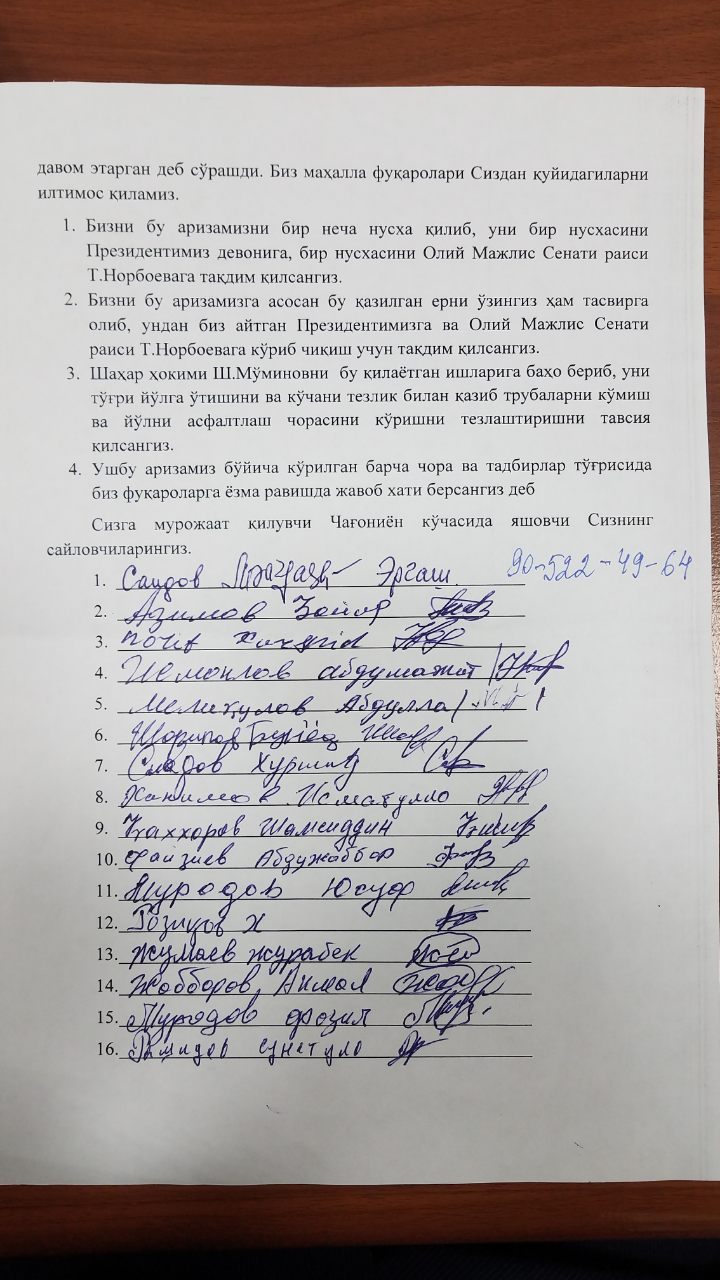 давом этарган деб сўрашди. Биз маҳалла фуқаролари Сиздан қуйидагиларни
илтимос қиламиз.
1. Бизни бу аризамизни бир неча нусха қилиб, уни бир нусхасини
Президентимиз девонига, бир нусхасини Олий Мажлис Сенати раиси
Т.Норбоевага тақдим қилсангиз.
2. Бизни бу аризамизга асосан бу қазилган ерни ўзингиз ҳам тасвирга
олиб, ундан биз айтган Президентимизга ва Олий Мажлис Сенати
раиси Т.Норбоевага кўриб чиқиш учун тақдим қилсангиз.
3. Шаҳар ҳокими Ш.Мўминовни бу қилаётган ишларига баҳо бериб, уни
тўғри йўлга ўтишини ва кўчани тезлик билан қазиб трубаларни кўмиш
ва йўлни асфалтлаш чорасини кўришни тезлаштиришни тавсия
қилсангиз.
4. Ушбу аризамиз бўйича кўрилган барча чора ва тадбирлар тўғрисида
биз фуқароларга ёзма равишда жавоб хати берсангиз деб
Сизга мурожаат қилувчи Чағониён кўчасида яшовчи Сизнинг
сайловчиларингиз.
1. Саидов Эргаш 90-522-49-64
2. Азимов
3.
4. абдумажит
5. Мелиқулов Абдулла
6.
7. Хуршид
8. Исматулло
9. Қаххоров Шамсиддин
10. Файзиев Абдужаббор
11. Муродов Юсуф
12. Розиқов Х
13. Жумаев журабек
14. Жабборов Акмал
15. Муродов фозил
16. сунатуло